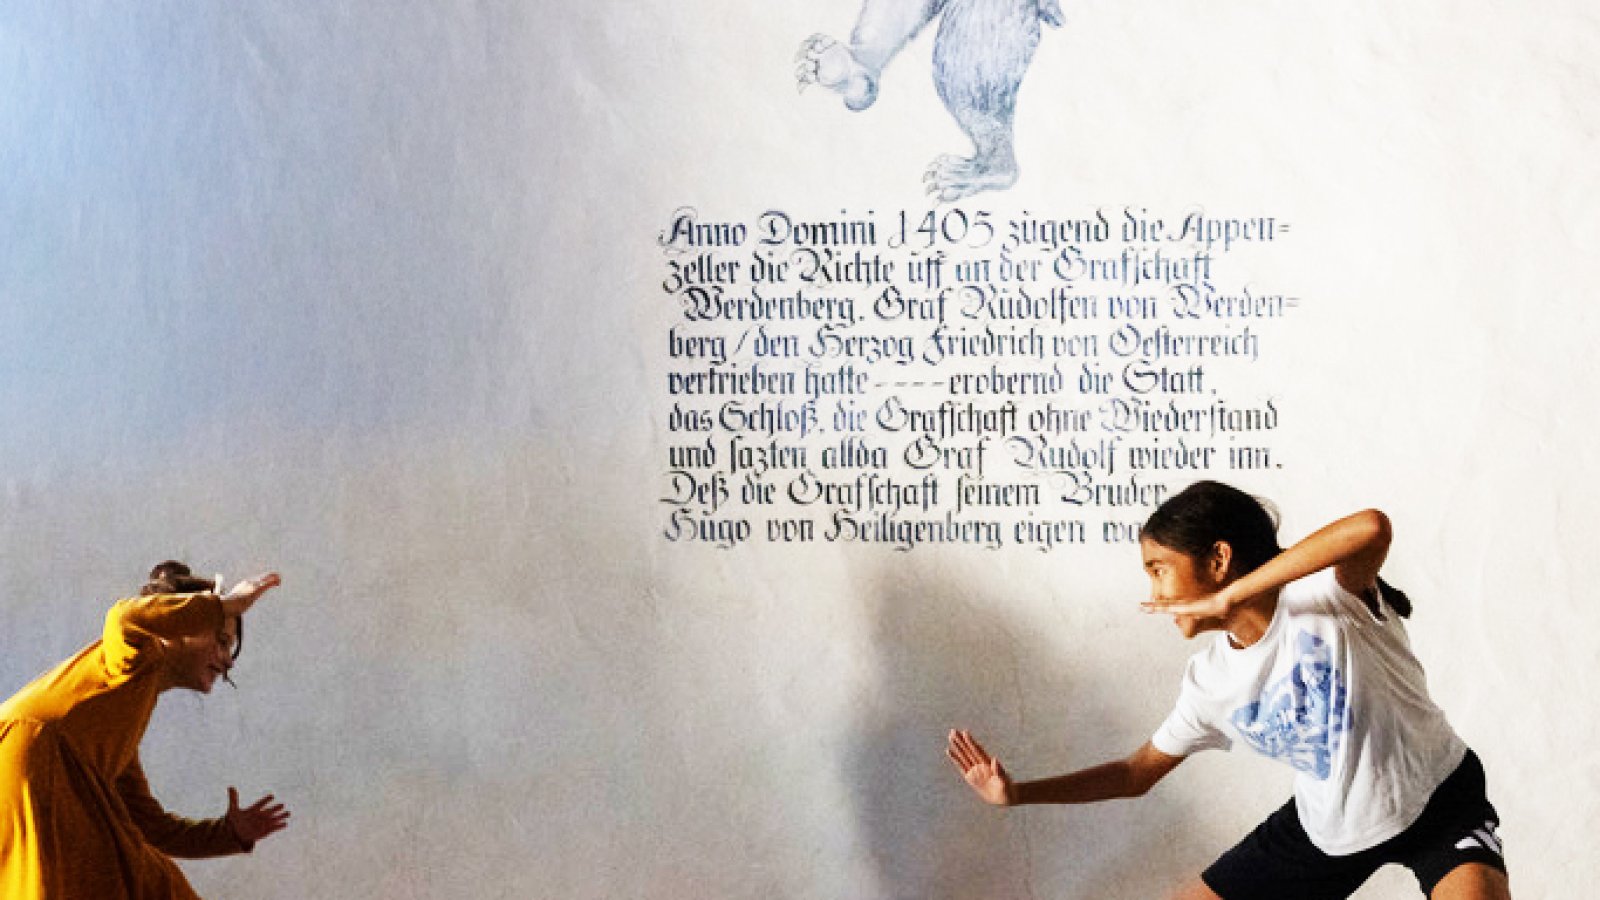 Anno Domini 1405 zügend die Appen=
zeller die Richte üff an der Grafschaft
Werdenberg. Graf Rüdolfen von Werden=
berg / den Herzog Friedrich von Oesterreich
vertrieben hatte ---- erobernd die Statt,
das Schloß, die Grafschaft ohne Wiederstand
und sazten allda Graf Rudolf wieder inn.
Deß die Grafschaft seinem Bruder
Hügo von Heiligenberg eigen